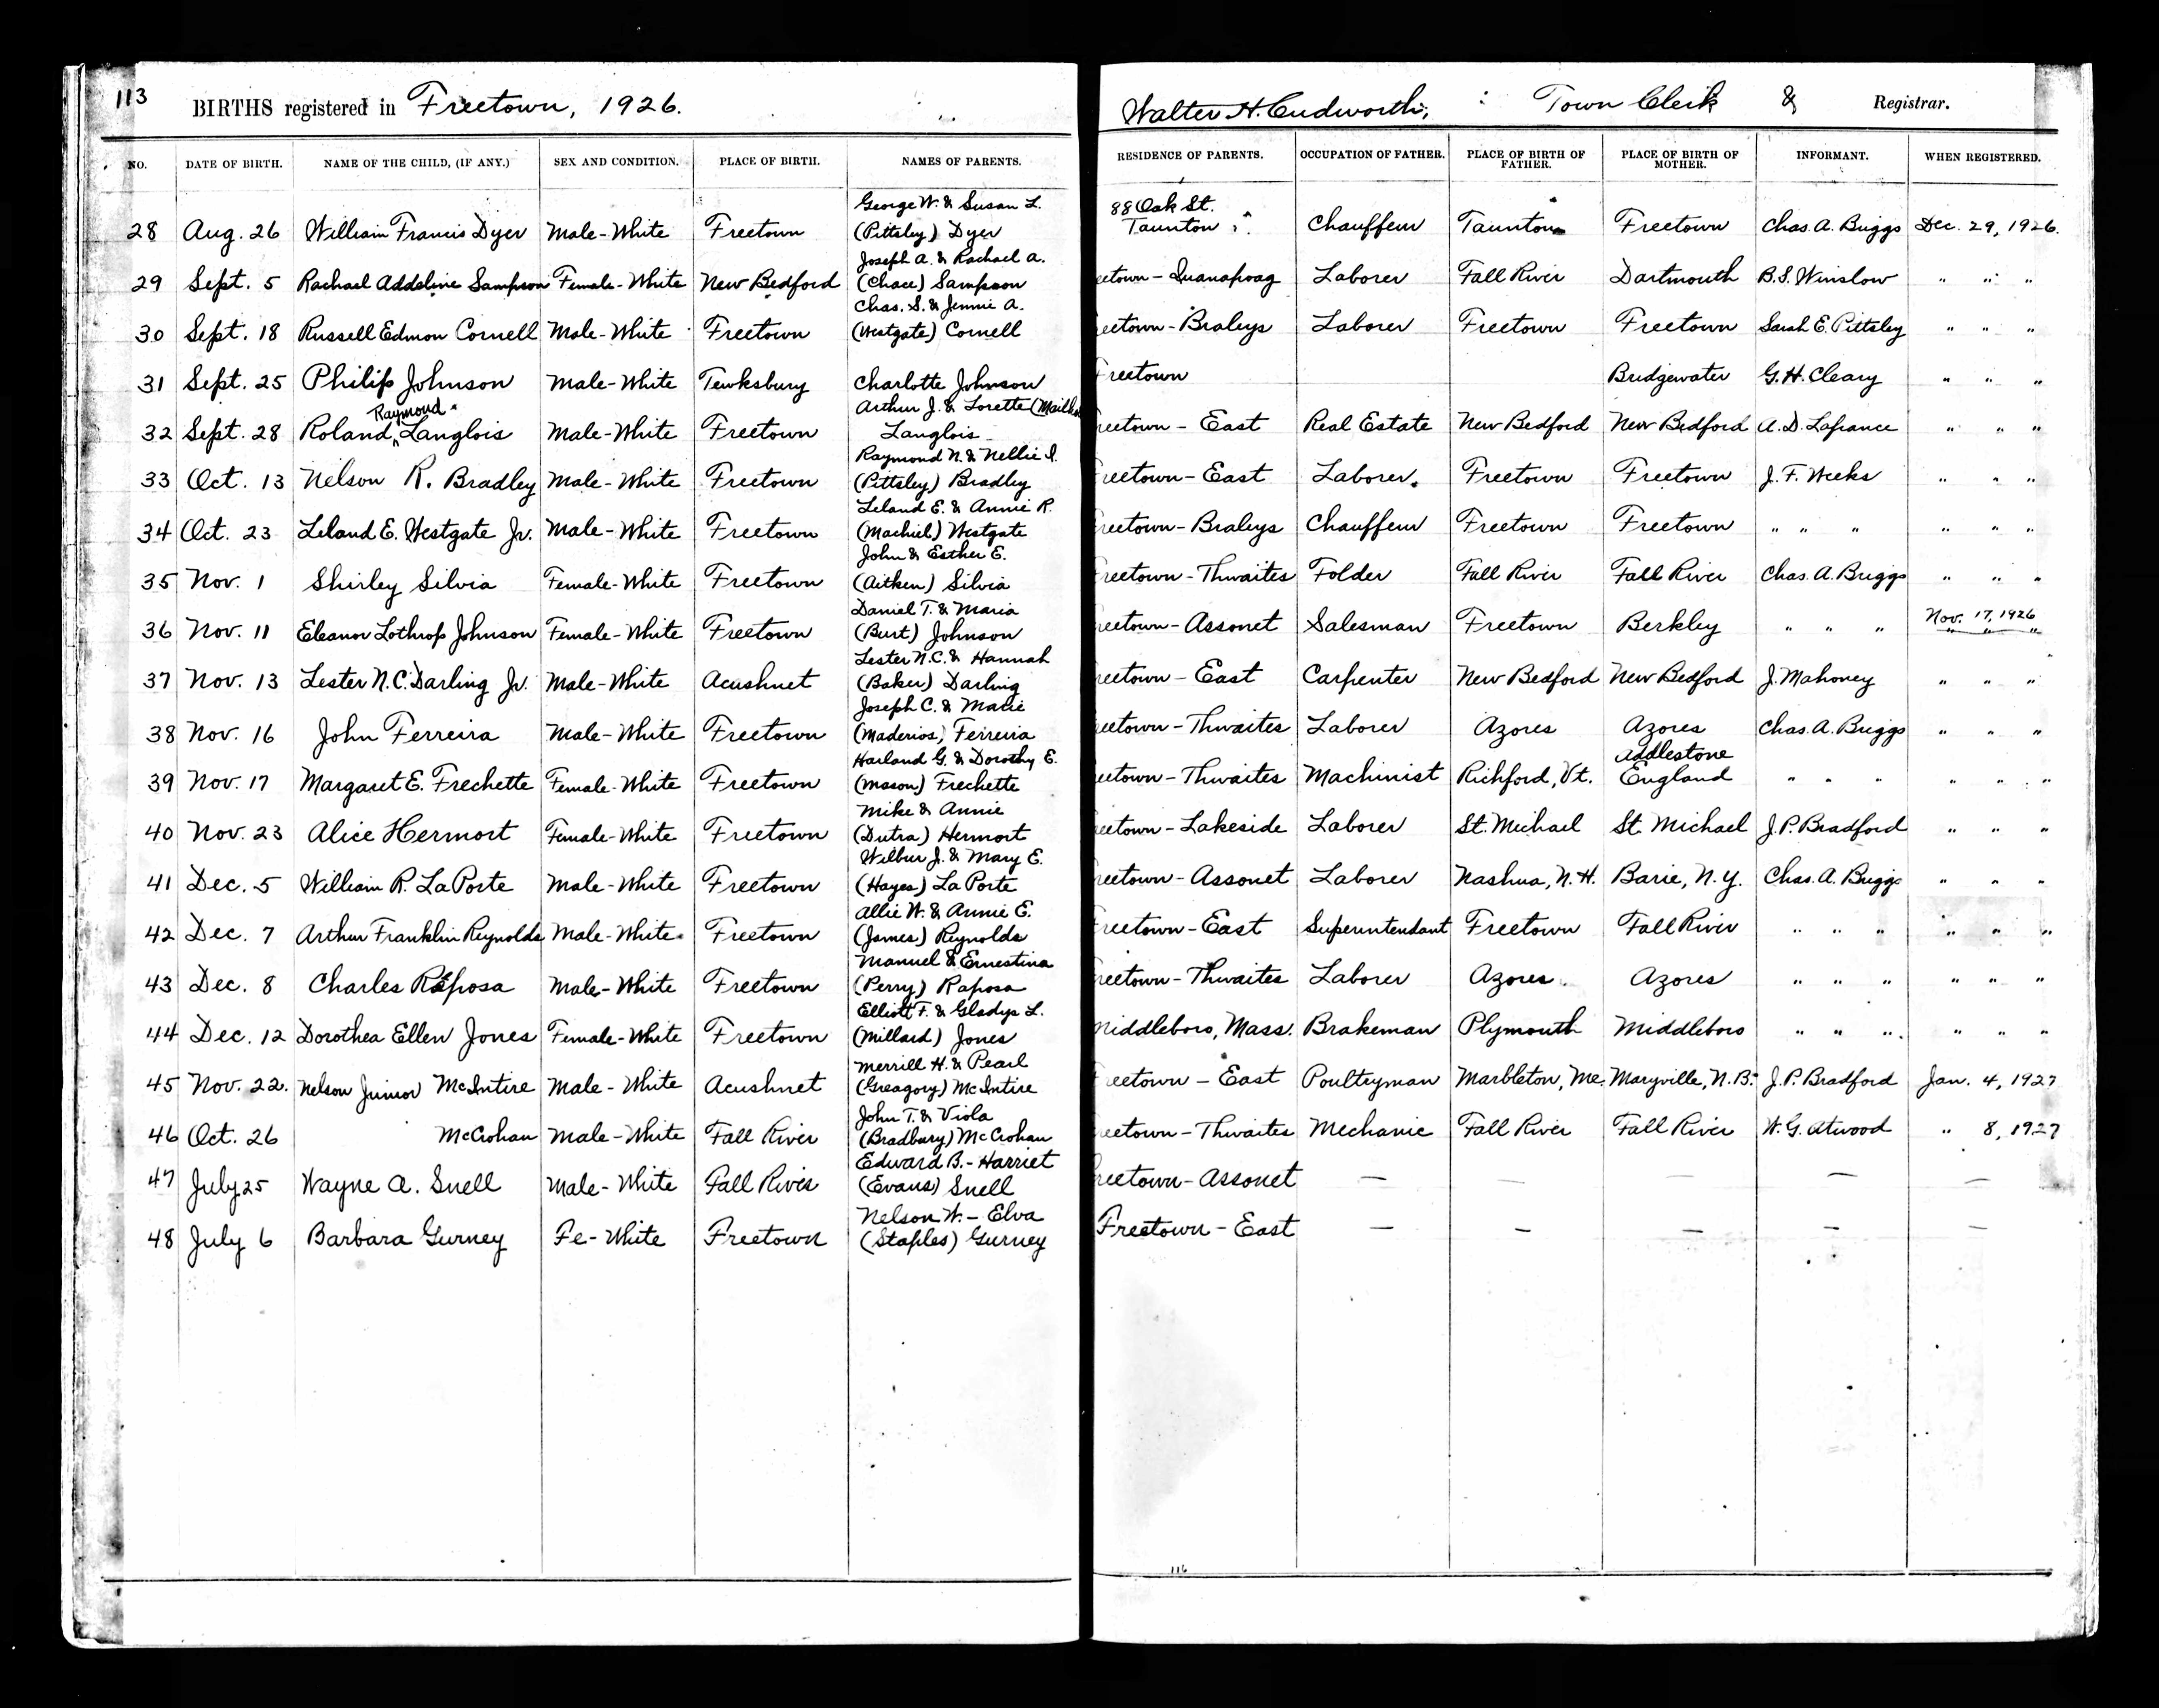 113 BIRTHS registered in Freetown, 1926. Walter H. Cudworth, Town Clerk & Registrar.
NO. DATE OF BIRTH. NAME OF THE CHILD, (IF ANY.) SEX AND CONDITION. PLACE OF BIRTH. NAMES OF PARENTS. RESIDENCE OF PARENTS. OCCUPATION OF FATHER. PLACE OF BIRTH OF FATHER. PLACE OF BIRTH OF MOTHER. INFORMANT. WHEN REGISTERED.
George W. & Susan L. 88 Oak St.
28 Aug. 26 William Francis Dyer Male-White Freetown (Pittsley) Dyer Taunton Chauffeur Taunton Freetown Chas. A. Briggs Dec. 29, 1926.
Joseph A. & Rachael A.
29 Sept. 5 Rachael Addeline Sampson Female-White New Bedford (Chace) Sampson eetown - Quanapoag Laborer Fall River Dartmouth B.S. Winslow " " "
Chas. S. & Jennie A.
30 Sept. 18 Russell Edmon Cornell Male-White Freetown (Westgate) Cornell eetown - Braleys Laborer Freetown Freetown Sarah E. Pittsley " " "
31 Sept. 25 Philip Johnson Male-White Tewksbury Charlotte Johnson Freetown Bridgewater G.H. Cleary " " "
Raymond Arthur J. & Lorette
32 Sept. 28 Roland Langlois Male-White Freetown Langlois reetown - East Real Estate New Bedford New Bedford A.D. Lafrance " " "
Raymond N. & Nellie I.
33 Oct. 13 Nelson R. Bradley Male-White Freetown (Pittsley) Bradley reetown - East Laborer. Freetown Freetown J.F. Weeks " " "
Leland E. & Annie R.
34 Oct. 23 Leland E. Westgate Jr. Male-White Freetown (Machiel) Westgate reetown - Braleys Chauffeur Freetown Freetown " " " " " "
John & Esther E.
35 Nov. 1 Shirley Silvia Female-White Freetown (Aitken) Silvia reetown - Thwaites Folder Fall River Fall River Chas. A. Briggs " " "
Daniel T. & Maria Nov. 17, 1926
36 Nov. 11 Eleanor Lothrop Johnson Female-White Freetown (Burt) Johnson reetown - Assonet Salesman Freetown Berkley " " " " " "
Lester N.C. & Hannah
37 Nov. 13 Lester N.C. Darling Jr. Male-White Acushnet (Baker) Darling reetown - East Carpenter New Bedford New Bedford J. Mahoney " " "
Joseph C. & Marie
38 Nov. 16 John Ferreira Male-White Freetown (Maderios) Ferreira eetown - Thwaites Laborer Azores Azores Chas. A. Briggs " " "
Harland G. & Dorothy E. Addlestone
39 Nov. 17 Margaret E. Frechette Female-White Freetown (Mason) Frechette eetown - Thwaites Machinist Richford, Vt. England " " " " " "
Mike & Annie
40 Nov. 23 Alice Hermort Female-White Freetown (Dutra) Hermort eetown - Lakeside Laborer St. Michael St. Michael J.P. Bradford " " "
Wilbur J. & Mary E.
41 Dec. 5 William R. LaPorte Male-White Freetown (Hayes) LaPorte reetown - Assonet Laborer Nashua, N.H. Barie, N.Y. Chas. A. Briggs " " "
Allie W. & Annie E.
42 Dec. 7 Arthur Franklin Reynolds Male-White Freetown (James) Reynolds Freetown - East Superintendant Freetown Fall River " " " " " "
Manuel & Ernestina
43 Dec. 8 Charles Raposa Male-White Freetown (Perry) Raposa reetown - Thwaites Laborer Azores Azores " " " " " "
Elliott F. & Gladys L.
44 Dec. 12 Dorothea Ellen Jones Female-White Freetown (Millard) Jones Middleboro, Mass. Brakeman Plymouth Middleboro " " " " " "
Merrill H. & Pearl
45 Nov. 22. Nelson Junior McIntire Male-White Acushnet (Greagory) McIntire eetown - East Poultryman Marbleton, Me. Maryville, N.B. J.P. Bradford Jan. 4, 1927
John T. & Viola
46 Oct. 26 McCrohan Male-White Fall River (Bradbury) McCrohan eetown - Thwaites Mechanic Fall River Fall River W.G. Atwood " 8, 1927
Edward B. - Harriet
47 July 25 Wayne A. Snell Male-White Fall River (Evans) Snell reetown - Assonet — — — — —
Nelson W. - Elva
48 July 6 Barbara Gurney Fe-White Freetown (Staples) Gurney Freetown - East — — — — —
116